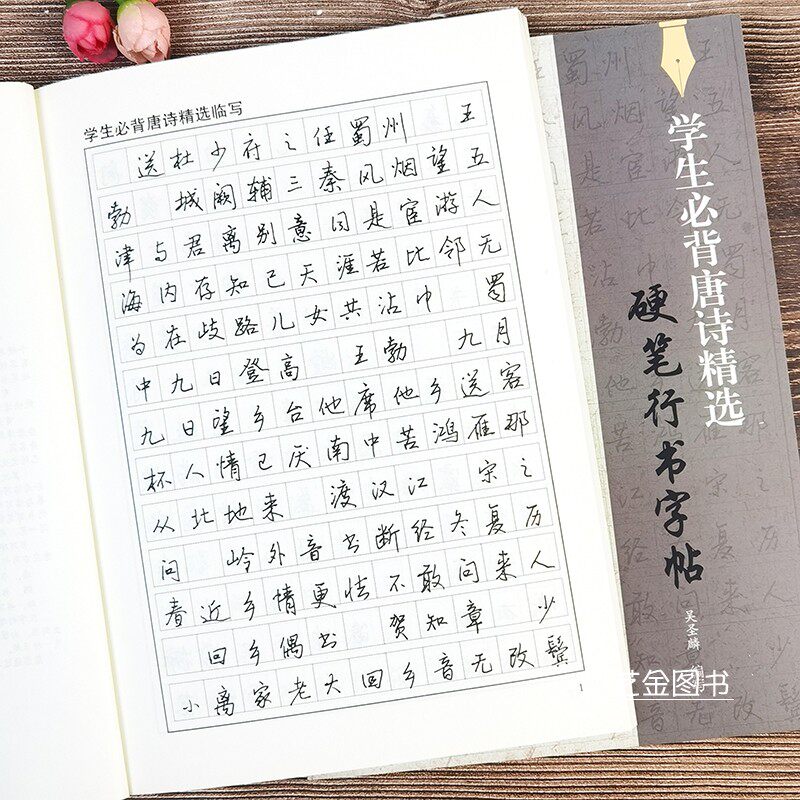 学生必背唐诗精选临写
送杜少府之任蜀州 王
勃 城阙辅三秦风烟望五
津与君离别意同是宦游人
海内存知己天涯若比邻无
为在歧路儿女共沾巾 蜀
中九日登高 王勃 九月
九日望乡台他席他乡送客
杯人情已厌南中苦鸿雁那
从北地来 渡汉江 宋之
问 岭外音书断经冬复历
春近乡情更怯不敢问来人
回乡偶书 贺知章 少
小离家老大回乡音无改鬓
1
学生必背唐诗精选
硬笔行书字帖
吴圣麟 编著
艺金图书